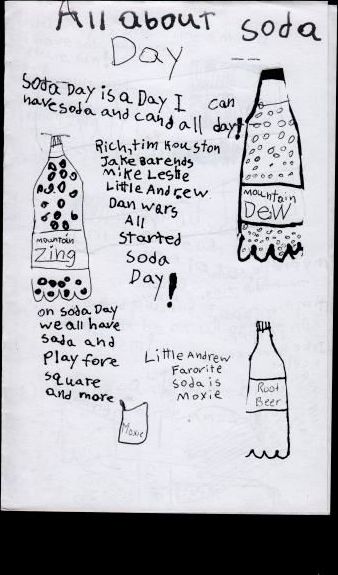 All about soda
Day
Soda Day is a Day I can
have soda and candall day!
Rich, tim Houston
Jake Barends
Mike Leslie
Little Andrew
Dan wars
All
Started
Soda
Day!
mountain
Zing
mountain
DeW
on soda Day
we all have
soda and
Play fore
square
and more
Little Andrew
Farorite
soda is
Moxie
Moxie
Root
Beer